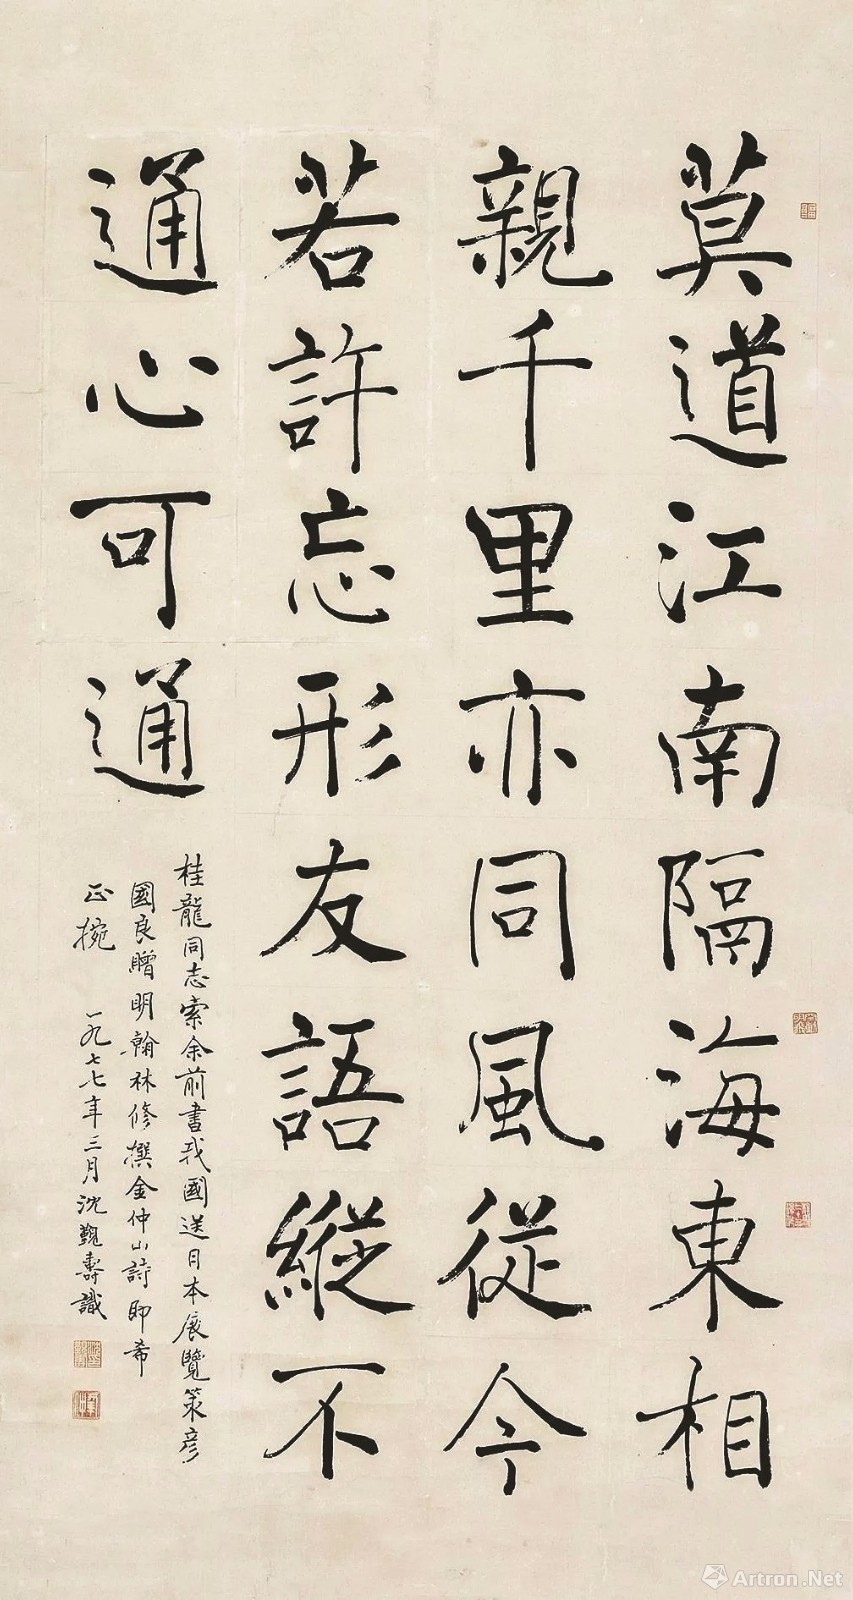 莫道江南隔海東相
親千里亦同風從今
若許忘形友語縱不
通心可通
桂龍同志索余前書我國送日本展覽策彥
國良贈明翰林修撰金仲山詩即希
正捥 一九七七年三月沈覲壽識
Artron.Net